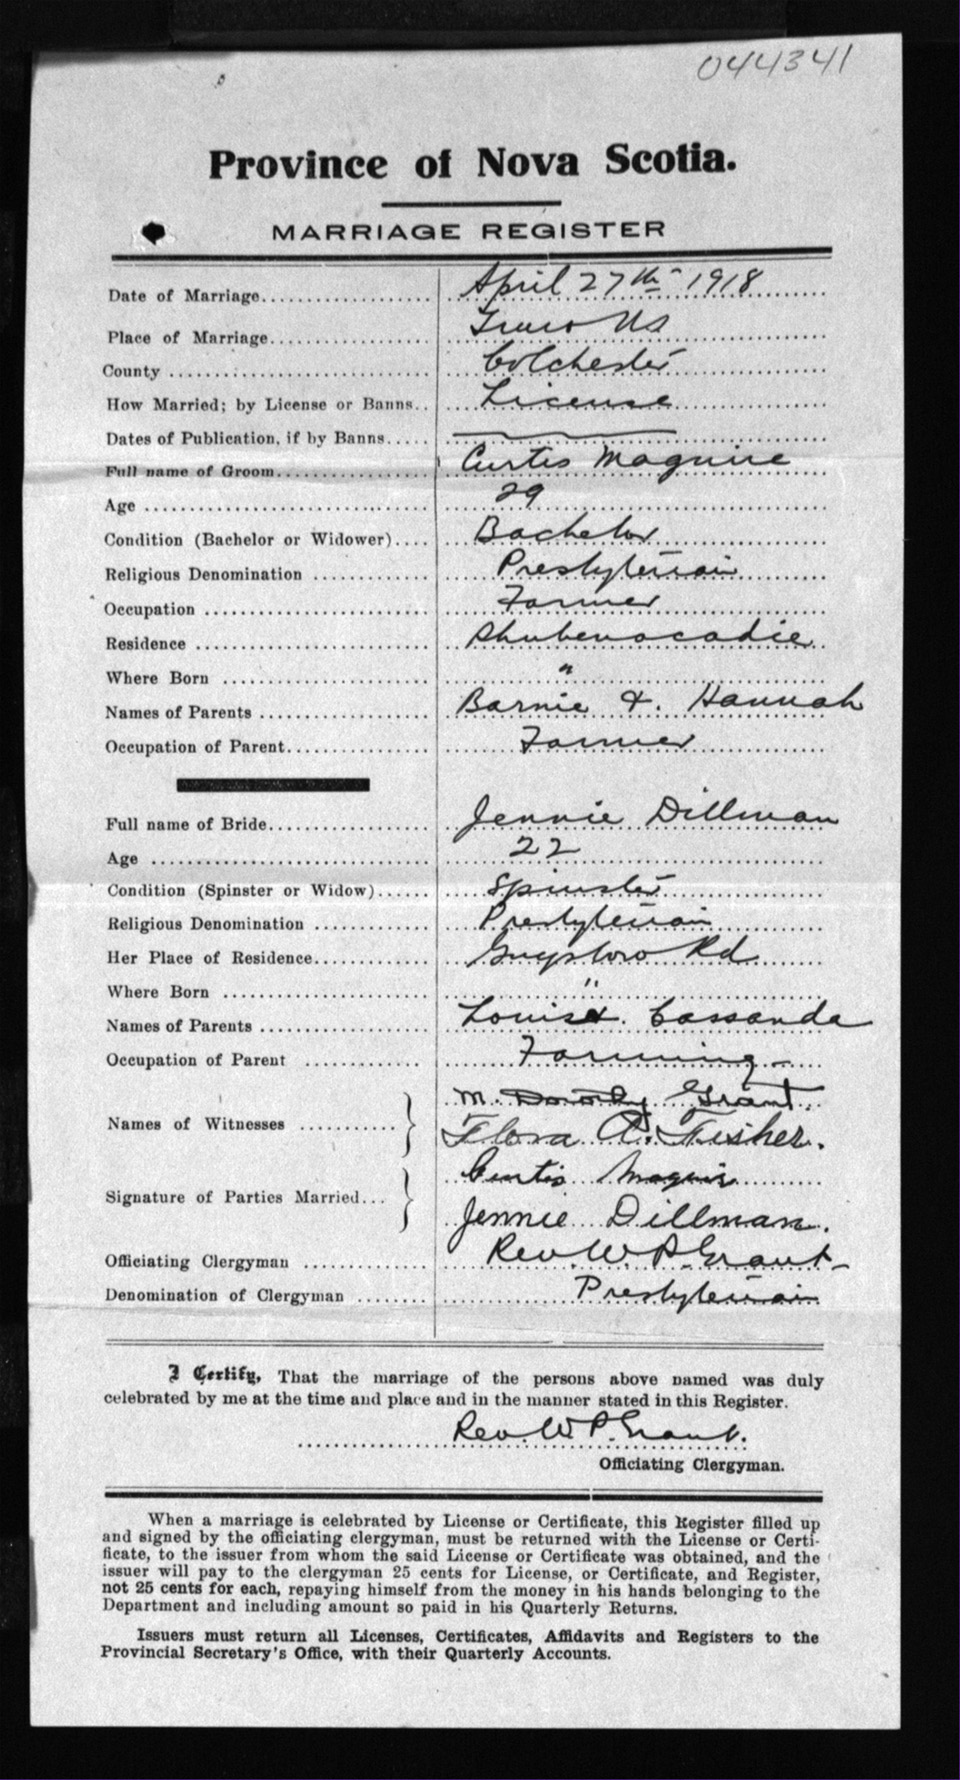 044341
Province of Nova Scotia.
MARRIAGE REGISTER
Date of Marriage.................. April 27th 1918
Place of Marriage.................. Truro NS
County .................. Colchester
How Married; by License or Banns.. License
Dates of Publication, if by Banns.....
Full name of Groom.................. Curtis Maguire
Age .................. 29
Condition (Bachelor or Widower).... Bachelor
Religious Denomination ............ Presbyterian
Occupation .................. Farmer
Residence .................. Shubenacadie
Where Born .................. "
Names of Parents .................. Barnie &. Hannah
Occupation of Parent.................. Farmer
Full name of Bride.................. Jennie Dillman
Age .................. 22
Condition (Spinster or Widow)...... Spinster
Religious Denomination ............ Presbyterian
Her Place of Residence............ Guysboro Rd
Where Born .................. "
Names of Parents .................. Louis &. Cassanda
Occupation of Parent ............ Farming
Names of Witnesses ............ M. Dorothy Grant.
Flora A. Fisher.
Signature of Parties Married... Curtis Maguir
Jennie Dillman.
Officiating Clergyman ............ Rev. W. P. Grant
Denomination of Clergyman ........ Presbyterian
I Certify, That the marriage of the persons above named was duly
celebrated by me at the time and place and in the manner stated in this Register.
Rev. W P. Grant.
Officiating Clergyman.
When a marriage is celebrated by License or Certificate, this Register filled up
and signed by the officiating clergyman, must be returned with the License or Certi-
ficate, to the issuer from whom the said License or Certificate was obtained, and the
issuer will pay to the clergyman 25 cents for License, or Certificate, and Register,
not 25 cents for each, repaying himself from the money in his hands belonging to the
Department and including amount so paid in his Quarterly Returns.
Issuers must return all Licenses, Certificates, Affidavits and Registers to the
Provincial Secretary's Office, with their Quarterly Accounts.